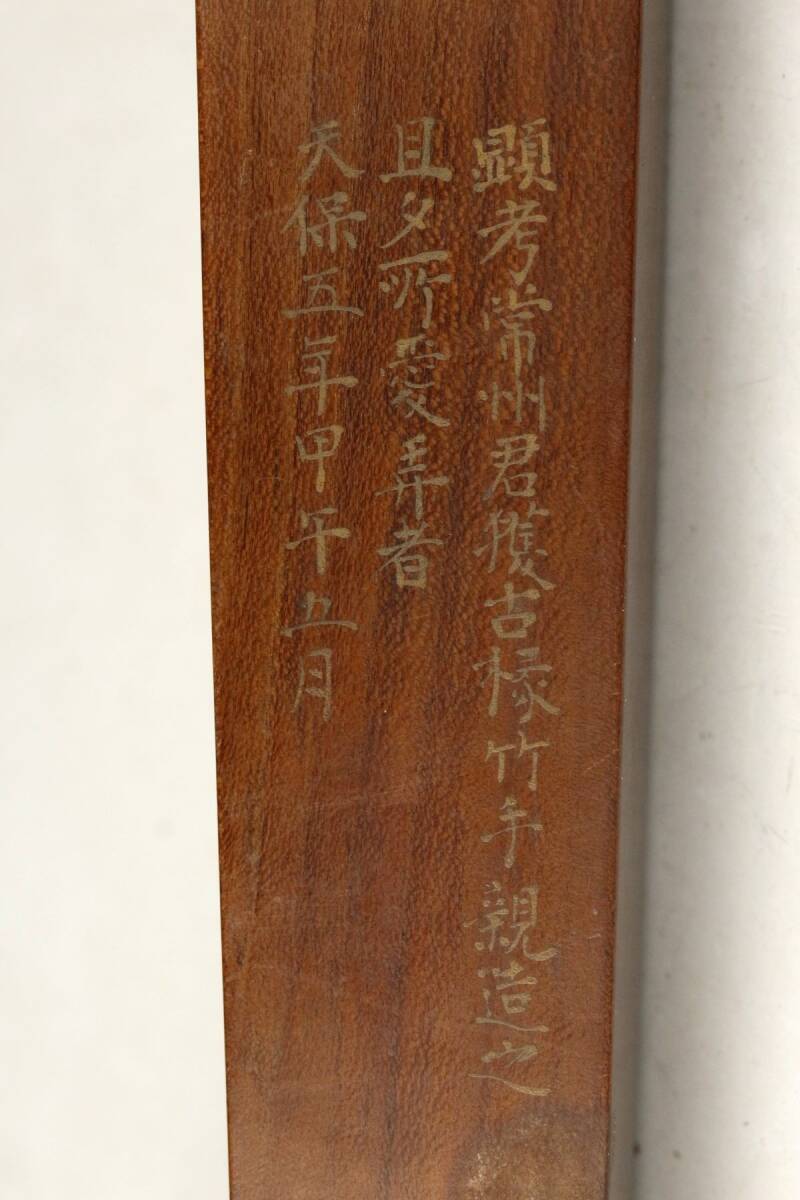 顕考常州君獲古椽竹手親造之
且夕所愛弄者
天保五年甲午五月